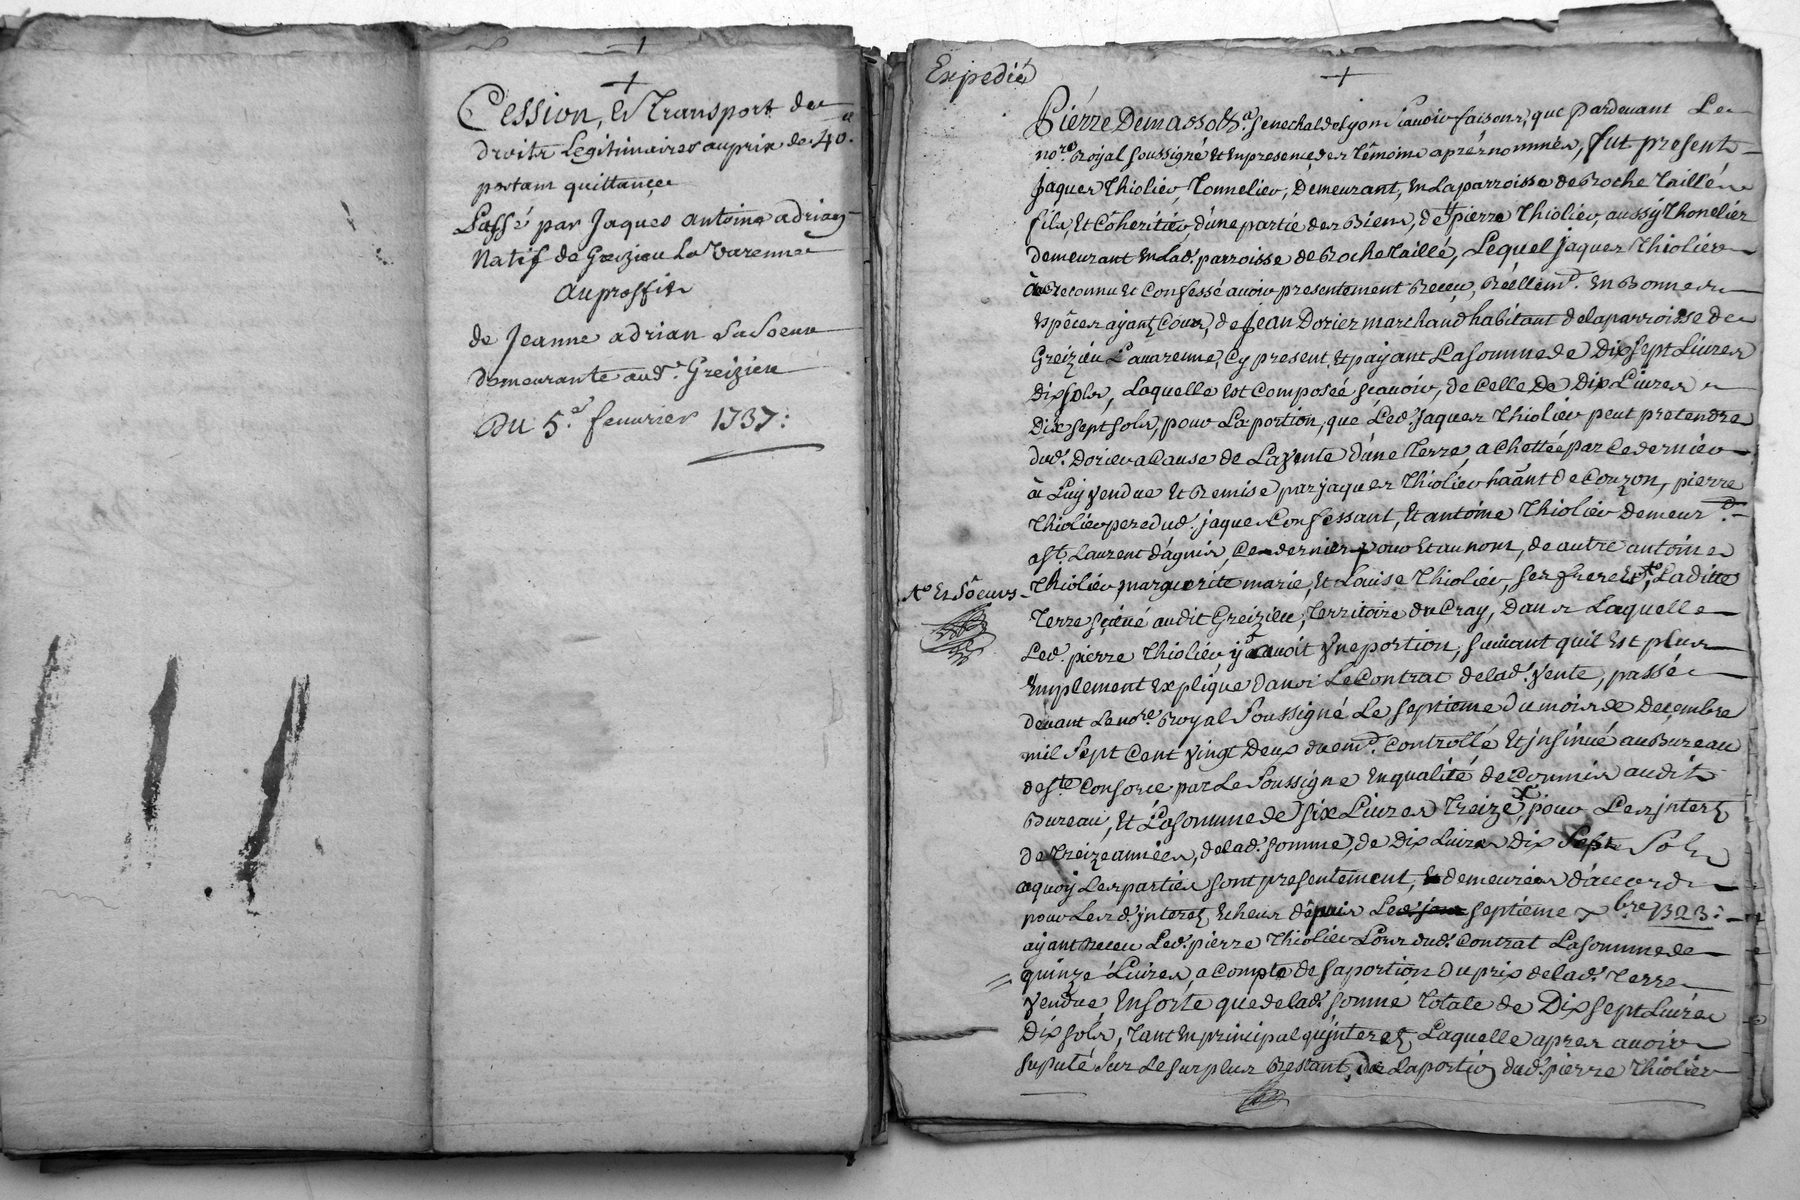 Cession, et Transport de
droits Legitimaires au prix de 40.ᵗᵗ
portant quittance
Passé par Jaques antoine adrian
Natif de Greizieu La Varenne
au proffit
de Jeanne adrian sa soeur
demeurante aud.ᵗ Greizieu
Du 5.ᵉ feuvrier 1737:
Expedié
Pierre Demasso &.ᵃ senechal de Lyon scavoir faisons, que pardevant Le
no.ʳᵉ Royal soussigné et en presence des témoins aprés nommés, fut present
Jaques Thiolier, Tonnelier, demeurant, en La parroisse de Roche Taillée
fils, et Cohéritier, d'une partie des Biens, de pierre Thiolier, aussy Thonelier
demeurant en Lad.ᵉ parroisse de Roche Taillé, Lequel jaques Thiolier
à Reconnu et Confessé avoir presentement Receu, Réellem.ᵗ en Bonnes
espêces ayant Cours, de Jean Dorier marchand habitant de la parroisse de
Greizieu Lavarenne, Cy present, et payant La somme de Dix sept Livres
dix sols, Laquelle est Composée scavoir, de Celle de Dix Livres
Dix sept sols, pour La portion, que Led.ᵗ Jaques Thiolier peut pretendre
dud.ᵗ Dorier a Cause de La vente d'une Terre, achettée par Ce dernier
à Luy vendue et Remise par jaques Thiolier hãant de Couzon, pierre
Thiolier pere dud.ᵗ jaques Confessant, et antoine Thiolier demeur.ᵗ
a S.ᵗ Laurent d'agnis, Ce dernier pour et au nom, de autre antoine
Thiolier, marguerite marie, et Louise Thiolier, ses frere et, La ditte
et soeurs
Terre scitué audit Greizieu, Territoire du Cray, dans Laquelle
Led.ᵗ pierre Thiolier, y avoit une portion, suivant quil est plus
emplement expliqué dans Le Contrat de lad.ᵉ vente, passé
devant Le no.ʳᵉ Royal soussigné Le septieme du mois de decembre
mil sept Cent vingt Deux duem.ᵗ Controllé et insinué au Bureau
de s.ᵗᵉ Consorce par Le soussigné en qualité de Commis audit
Bureau, et La somme de six Livres Treize, pour Les interets
de Treize années, de lad.ᵉ somme, de Dix Livres Dix sept sols
a quoy Les parties sont presentement, et demeurées d'accord
pour Les d.ᵗˢ interets, echeus depuis Led. jour septieme xbre 1323:
ayant Receu Led.ᵗ pierre Thiolier Lors dud.ᵗ Contrat La somme de
quinze Livres, a Compte de sa portion du prix de lad.ᵉ Terre
vendue, Ensorte que de lad.ᵉ somme Totale de Dix sept Livres
Dix sols, Tant en principal qu'interets, Laquelle apres avoir
suputé sur Le surplus Restant, de La portion dud.ᵗ pierre Thiolier